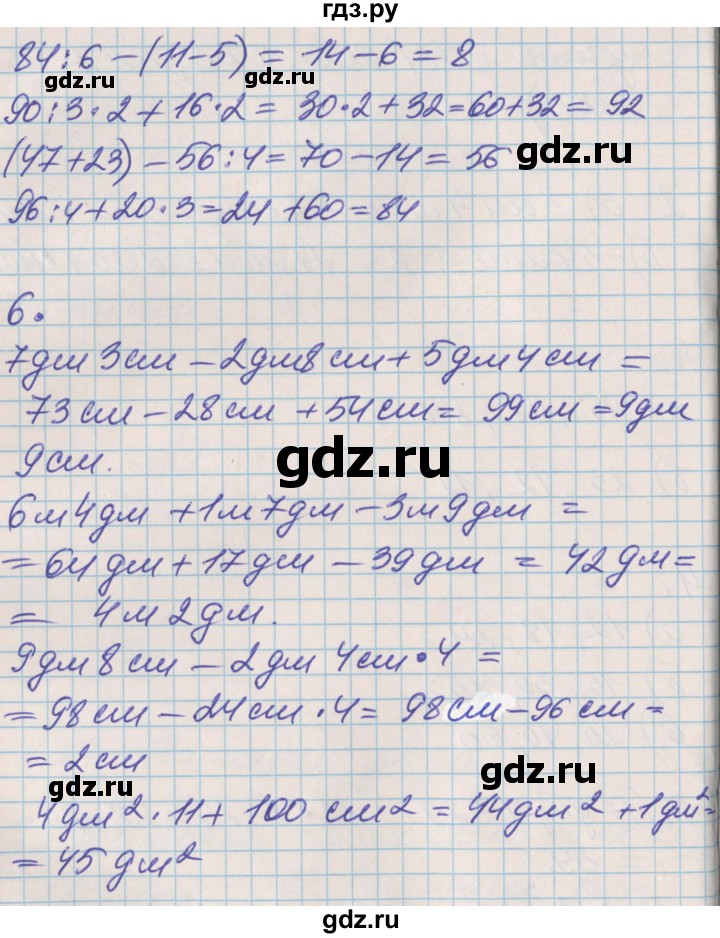 гдз.ру
84:6 – (11-5) = 14 – 6 = 8
gdz.ru gdz.ru
90:3·2 + 16·2 = 30·2 + 32 = 60+32 = 92
(47+23) – 56:4 = 70 – 14 = 56
gdz.ru
96:4+20·3=24+60=84
6.
7дм 3см – 2дм8см + 5дм4см =
73см – 28см + 54см = 99см = 9дм
9см.
gdz.ru
6м4дм + 1м7дм – 3м9дм =
= 64дм + 17дм – 39дм = 42дм =
= 4м 2дм.
9дм 8см – 2дм 4см·4 =
= 98см – 24см·4 = 98см – 96см =
= 2см
gdz.ru
gdz.ru
4дм²·11+ 100 см² = 44дм² +1дм²=
= 45дм²
gdz.ru